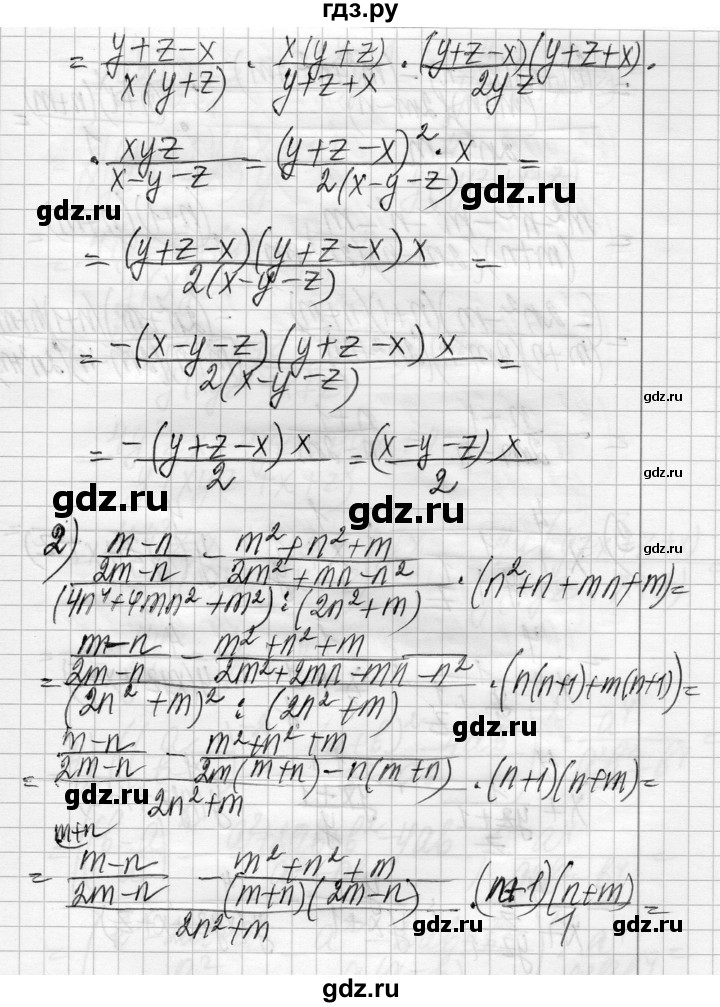 гдз.ру
= (y+z-x)/(x(y+z)) · (x(y+z))/(y+z+x) · ((y+z-x)(y+z+x))/(2yz) ·
· (xyz)/(x-y-z) = ((y+z-x)² · x)/(2(x-y-z)) =
gdz.ru gdz.ru
= ((y+z-x)(y+z-x)x)/(2(x-y-z)) =
= (-(x-y-z)(y+z-x)x)/(2(x-y-z)) =
gdz.ru
= (-(y+z-x)x)/2 = ((x-y-z)x)/2
gdz.ru
gdz.ru gdz.ru
2) ((m-n)/(2m-n) - (m²+n²+m)/(2m²+mn-n²))/((4n⁴+4mn²+m²):(2n²+m)) · (n²+n+mn+m) =
gdz.ru
= ((m-n)/(2m-n) - (m²+n²+m)/(2m²+2mn-mn-n²))/((2n²+m)² : (2n²+m)) · (n(n+1)+m(n+1)) =
gdz.ru
gdz.ru
= ((m-n)/(2m-n) - (m²+n²+m)/(2m(m+n)-n(m+n)))/(2n²+m) · (n+1)(n+m) =
gdz.ru
gdz.ru
m+n
= ((m-n)/(2m-n) - (m²+n²+m)/((m+n)(2m-n)))/(2n²+m) · ((n+1)(n+m))/1 =
gdz.ru gdz.ru
gdz.ru
gdz.ru